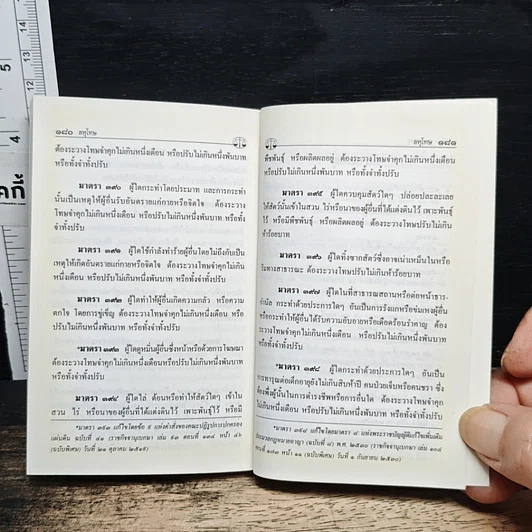 ๑๘๐ ลหุโทษ
ต้องระวางโทษจำคุกไม่เกินหนึ่งเดือน หรือปรับไม่เกินหนึ่งพันบาท
หรือทั้งจำทั้งปรับ
มาตรา ๓๙๐ ผู้ใดกระทำโดยประมาท และการกระทำ
นั้นเป็นเหตุให้ผู้อื่นรับอันตรายแก่กายหรือจิตใจ ต้องระวาง
โทษจำคุกไม่เกินหนึ่งเดือน หรือปรับไม่เกินหนึ่งพันบาท หรือทั้งจำ
ทั้งปรับ
มาตรา ๓๙๑ ผู้ใดใช้กำลังทำร้ายผู้อื่นโดยไม่ถึงกับเป็น
เหตุให้เกิดอันตรายแก่กายหรือจิตใจ ต้องระวางโทษจำคุกไม่เกิน
หนึ่งเดือน หรือปรับไม่เกินหนึ่งพันบาท หรือทั้งจำทั้งปรับ
มาตรา ๓๙๒ ผู้ใดทำให้ผู้อื่นเกิดความกลัว หรือความ
ตกใจ โดยการขู่เข็ญ ต้องระวางโทษจำคุกไม่เกินหนึ่งเดือน หรือ
ปรับไม่เกินหนึ่งพันบาท หรือทั้งจำทั้งปรับ
*มาตรา ๓๙๓ ผู้ใดดูหมิ่นผู้อื่นซึ่งหน้าหรือด้วยการโฆษณา
ต้องระวางโทษจำคุกไม่เกินหนึ่งเดือนหรือปรับไม่เกินหนึ่งพันบาท
หรือทั้งจำทั้งปรับ
มาตรา ๓๙๔ ผู้ใดไล่ ต้อนหรือทำให้สัตว์ใดๆ เข้าใน
สวน ไร่ หรือนาของผู้อื่นที่ได้แต่งดินไว้ เพาะพันธุ์ไว้ หรือมี
*มาตรา ๓๙๓ แก้ไขโดยข้อ ๕ แห่งคำสั่งของคณะปฏิรูปการปกครอง
แผ่นดิน ฉบับที่ ๔๑ (ราชกิจจานุเบกษา เล่ม ๙๓ ตอนที่ ๑๓๔ หน้า ๔๖
(ฉบับพิเศษ) วันที่ ๒๑ ตุลาคม ๒๕๑๙)
ลหุโทษ ๑๘๑
พืชพันธุ์ หรือผลิตผลอยู่ ต้องระวางโทษจำคุกไม่เกินหนึ่งเดือน
หรือปรับไม่เกินหนึ่งพันบาท หรือทั้งจำทั้งปรับ
มาตรา ๓๙๕ ผู้ใดควบคุมสัตว์ใดๆ ปล่อยปละละเลย
ให้สัตว์นั้นเข้าในสวน ไร่หรือนาของผู้อื่นที่ได้แต่งดินไว้ เพาะพันธุ์
ไว้ หรือมีพืชพันธุ์ หรือผลิตผลอยู่ ต้องระวางโทษปรับไม่เกิน
ห้าร้อยบาท
มาตรา ๓๙๖ ผู้ใดทิ้งซากสัตว์ซึ่งอาจเน่าเหม็นในหรือ
ริมทางสาธารณะ ต้องระวางโทษปรับไม่เกินห้าร้อยบาท
มาตรา ๓๙๗ ผู้ใดในที่สาธารณสถานหรือต่อหน้าธาร-
กำนัล กระทำด้วยประการใดๆ อันเป็นการรังแกหรือข่มเหงผู้อื่น
หรือกระทำให้ผู้อื่นได้รับความอับอายหรือเดือดร้อนรำคาญ ต้อง
ระวางโทษจำคุกไม่เกินหนึ่งเดือน หรือปรับไม่เกินหนึ่งพันบาท หรือ
ทั้งจำทั้งปรับ
*มาตรา ๓๙๘ ผู้ใดกระทำด้วยประการใดๆ อันเป็น
การทารุณต่อเด็กอายุยังไม่เกินสิบห้าปี คนป่วยเจ็บหรือคนชรา ซึ่ง
ต้องพึ่งผู้นั้นในการดำรงชีพหรือการอื่นใด ต้องระวางโทษจำคุก
ไม่เกินหนึ่งเดือนหรือปรับไม่เกินหนึ่งพันบาท หรือทั้งจำทั้งปรับ
*มาตรา ๓๙๘ แก้ไขโดยมาตรา ๘ แห่งพระราชบัญญัติแก้ไขเพิ่มเติม
ประมวลกฎหมายอาญา (ฉบับที่ ๘) พ.ศ. ๒๕๓๐ (ราชกิจจานุเบกษา เล่ม ๑๐๔
ตอนที่ ๑๗๒ หน้า ๑๑ (ฉบับพิเศษ) วันที่ ๑ กันยายน ๒๕๓๐)
4
5
11
12
13
14